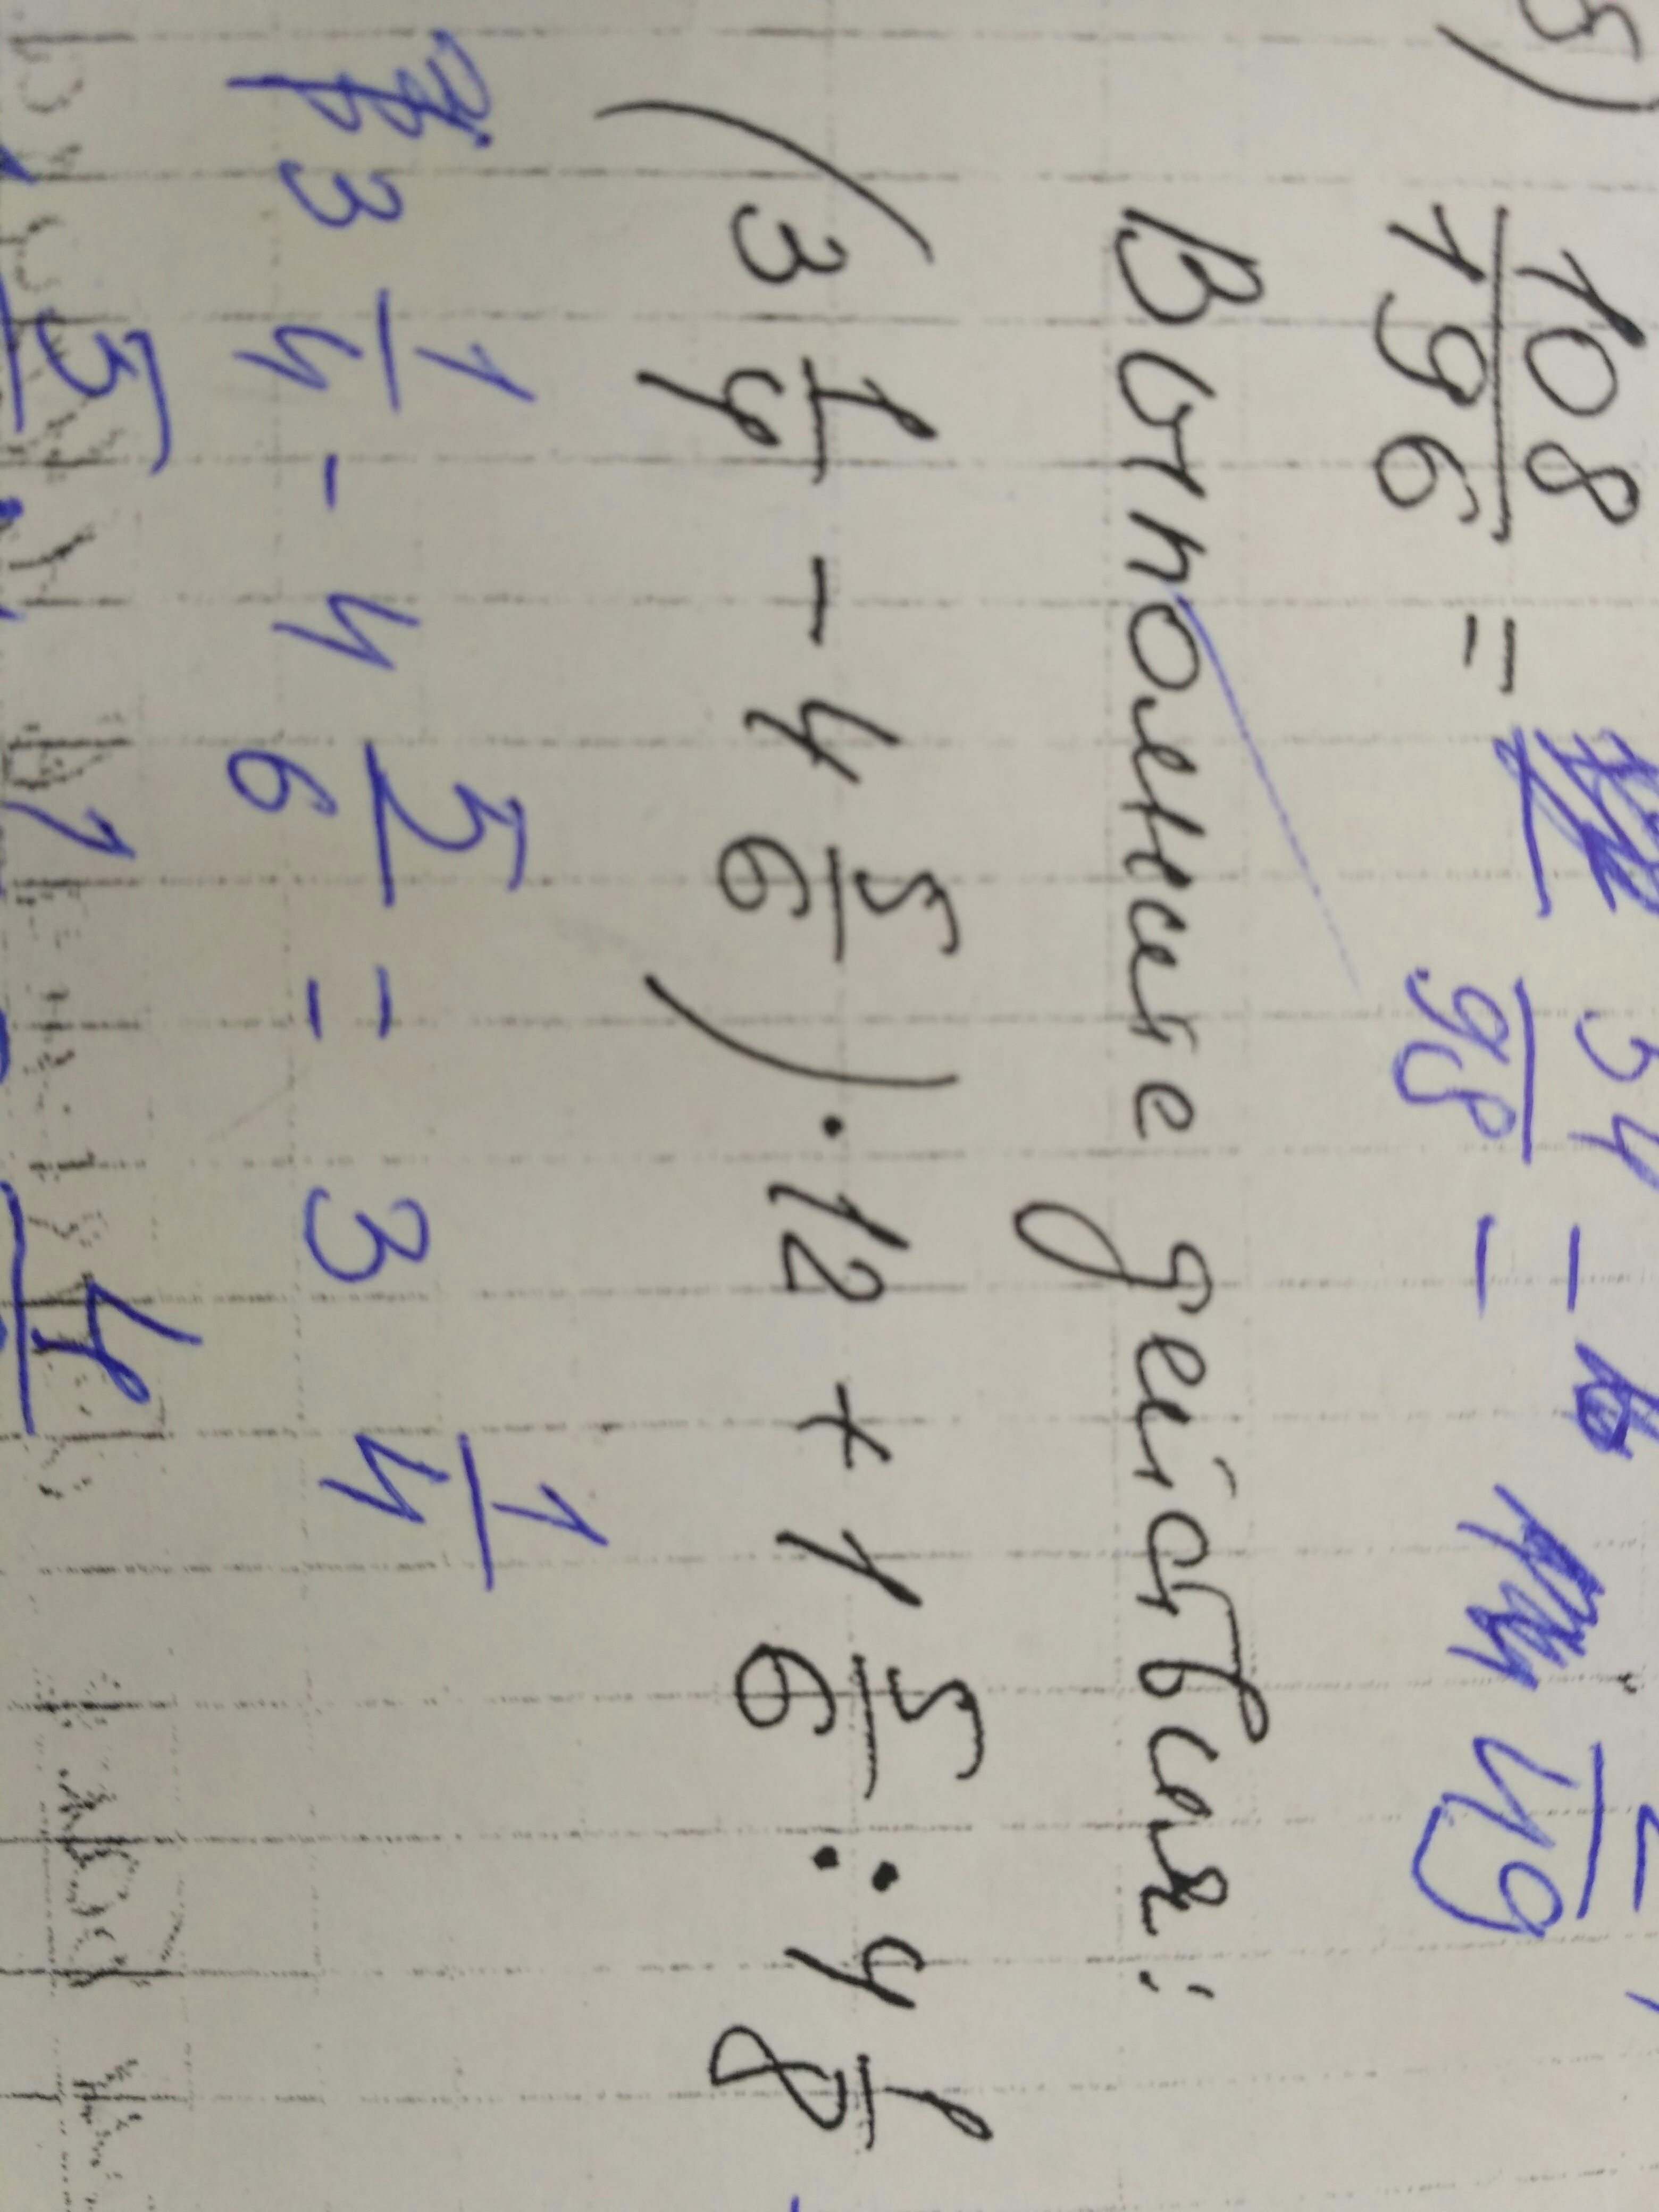 5)
108/196 = 54/98 = 49
Выполнение действия:
(3 1/4 - 4 5/6) · 12 + 1 5/6 : 4 1/8
3 1/4 - 4 5/6 = 3 1/4